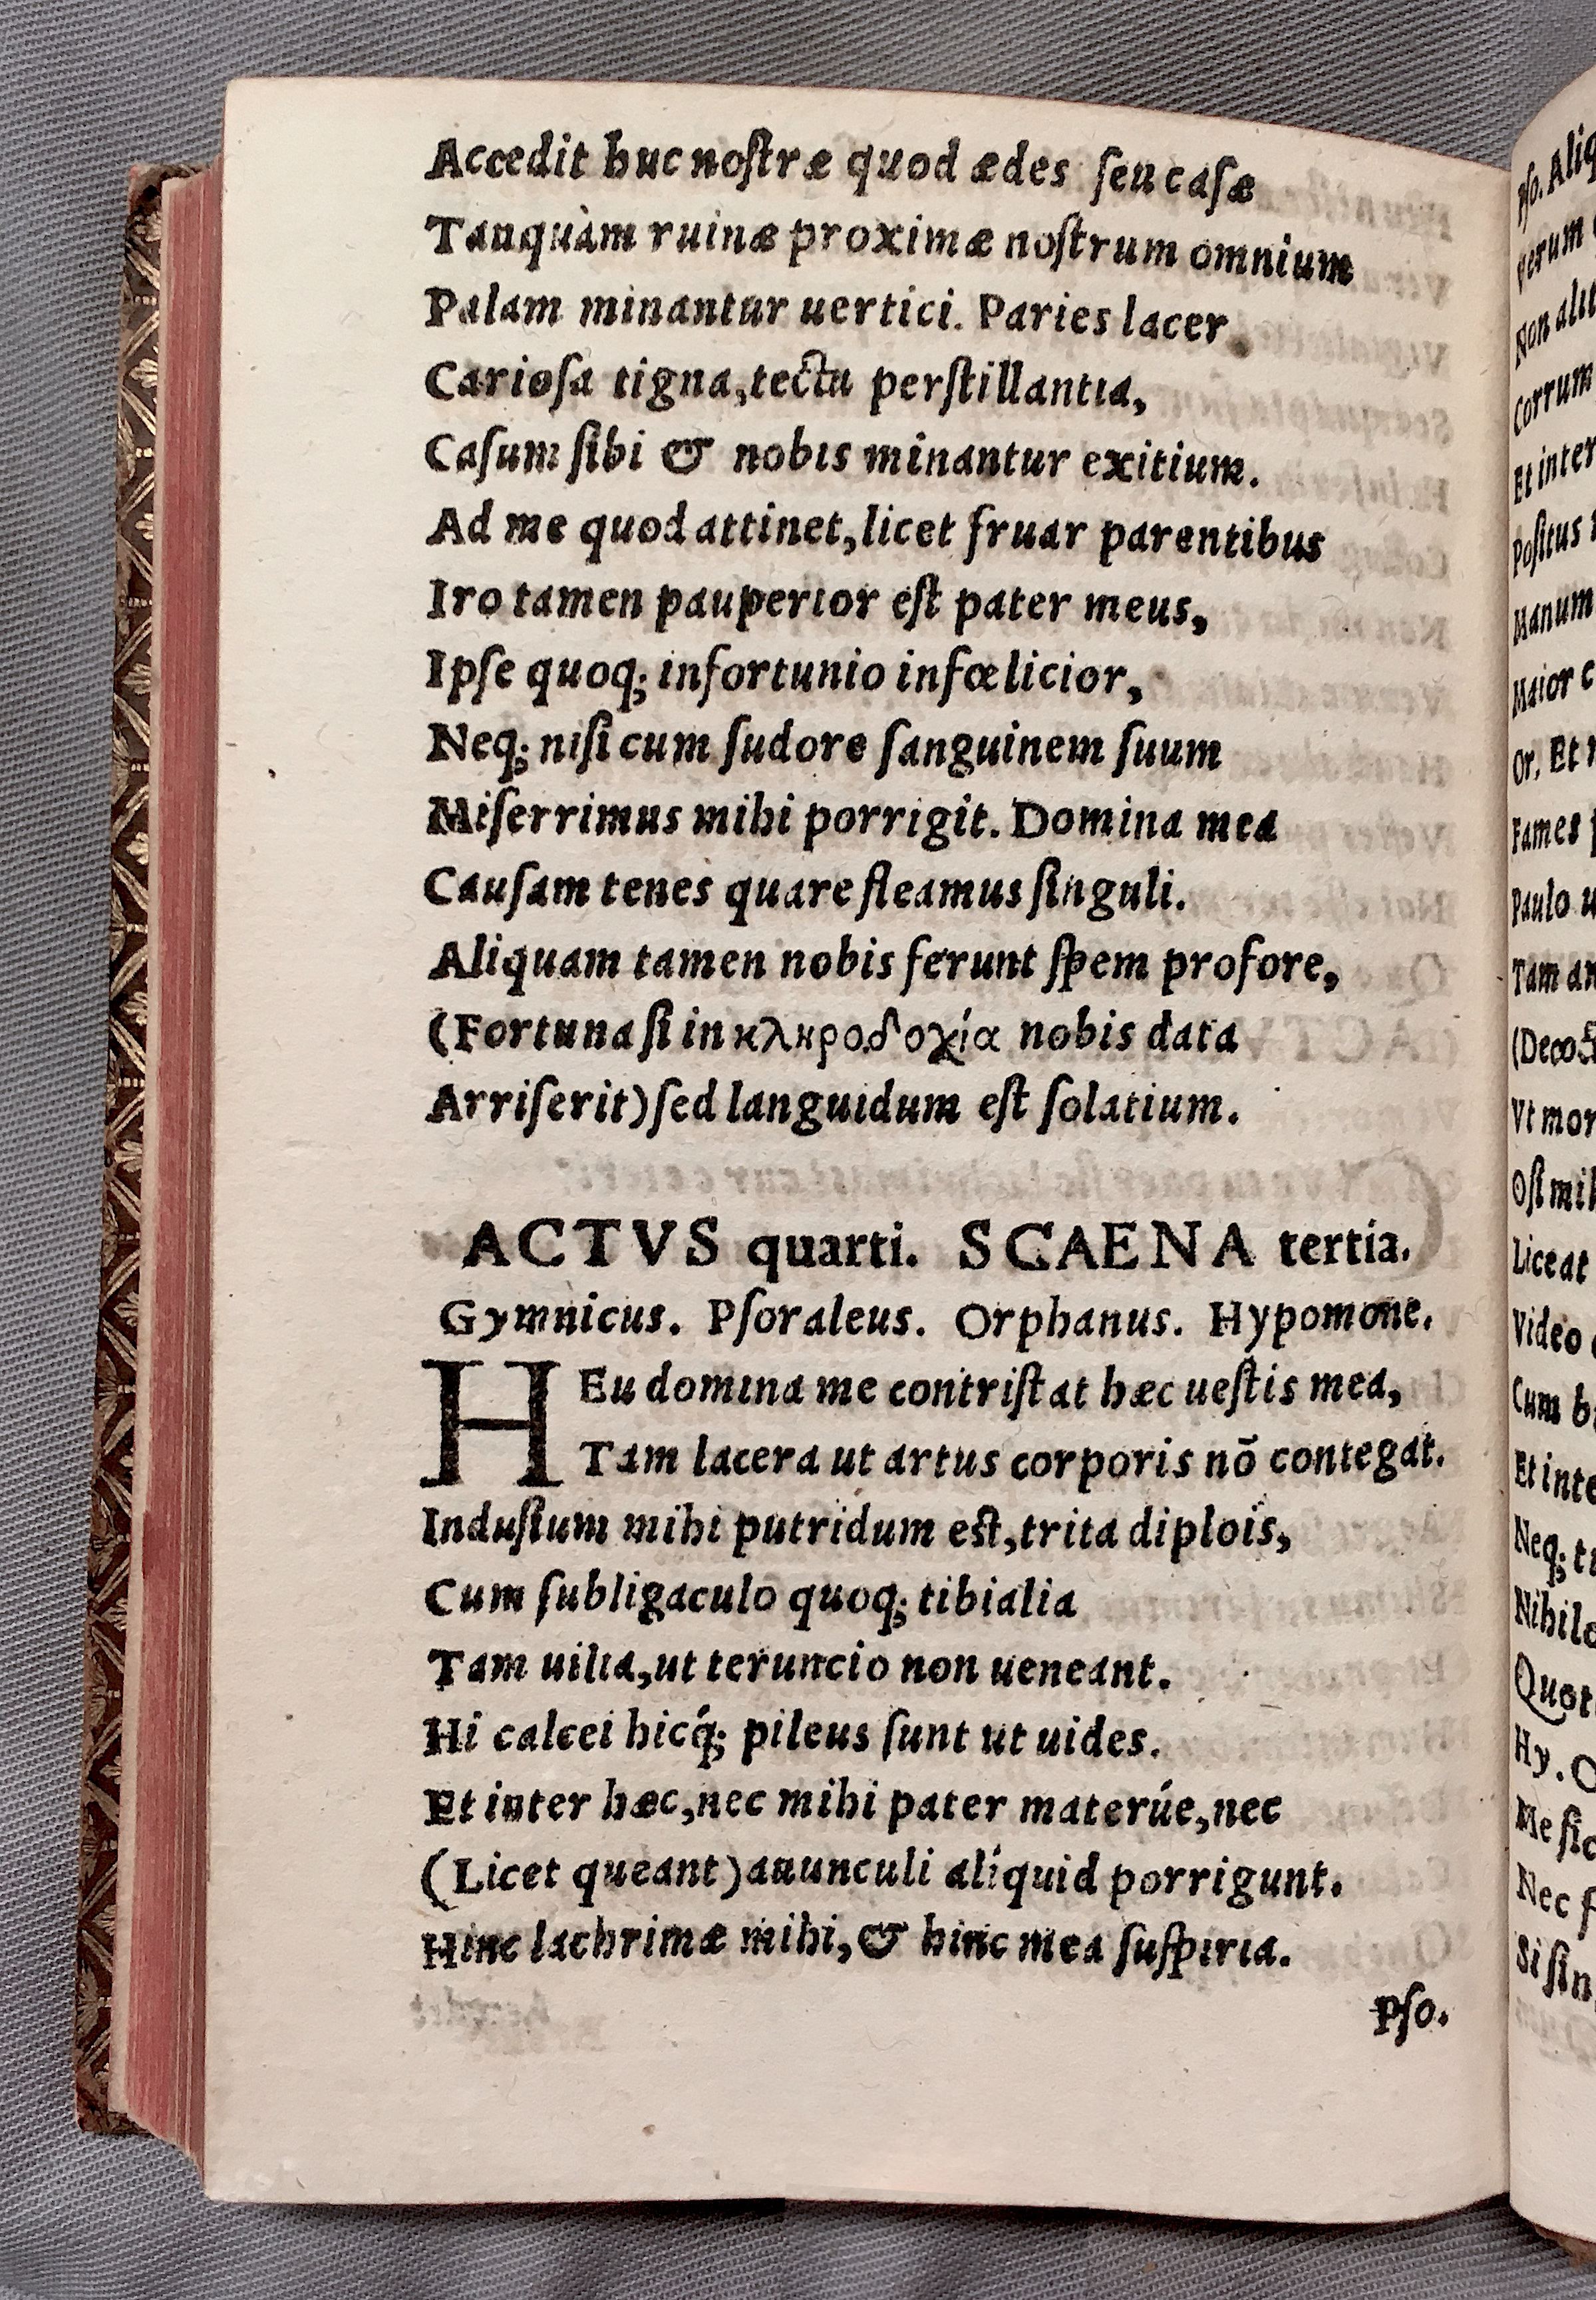 Accedit huc noſtræ quod ædes ſeu caſæ
Tanquàm ruinæ proximæ noſtrum omnium
Palam minantur uertici. Paries lacer
Carioſa tigna,tecta perſtillantia,
Caſum ſibi & nobis minantur exitium.
Ad me quod attinet,licet fruar parentibus
Iro tamen pauperior eſt pater meus,
Ipſe quoq; infortunio infœlicior,
Neq; niſi cum ſudore ſanguinem ſuum
Miſerrimus mihi porrigit. Domina mea
Cauſam tenes quare fleamus ſinguli.
Aliquam tamen nobis ferunt ſpem profore,
(Fortuna ſi in κληροδοχία nobis data
Arriſerit)ſed languidum eſt ſolatium.
ACTVS quarti. SCAENA tertia.
Gymnicus. Pſoraleus. Orphanus. Hypomone.
HEu domina me contriſtat hæc ueſtis mea,
Tam lacera ut artus corporis nō contegat.
Induſium mihi putridum eſt,trita diplois,
Cum ſubligaculo quoq; tibialia
Tam uilia,ut teruncio non ueneant.
Hi calcei hicq́; pileus ſunt ut uides.
Et inter hæc,nec mihi pater materúe,nec
(Licet queant)auunculi aliquid porrigunt.
Hinc lachrimæ mihi,& hinc mea ſuſpiria.
Pſo.
Pſo. Aliq
Verum
Non alit
Corrum
Et inter
Poſitus
Manum
Maior c
Or. Et
Fames
Paulo u
Tam an
Vt mor
Oſi mih
Liceat
Video
Cum
Et inte
Neq; t
Nihilo
Quot
Hy. O
Me ſic
Nec f
Si ſin